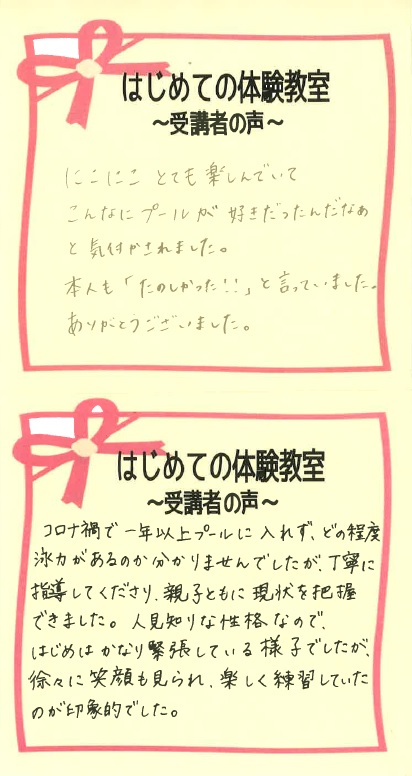 はじめての体験教室
～受講者の声～
にこにこ とても楽しんでいて
こんなにプールが 好きだったんだなぁ
と 気付かされました。
本人も「たのしかった!!」と言っていました。
ありがとうございました。
はじめての体験教室
～受講者の声～
コロナ禍で一年以上プールに入れず、どの程度
泳力があるのか分かりませんでしたが、丁寧に
指導してくださり、親子ともに現状を把握
できました。人見知りな性格なので、
はじめはかなり緊張している様子でしたが、
徐々に笑顔も見られ、楽しく練習していた
のが印象的でした。